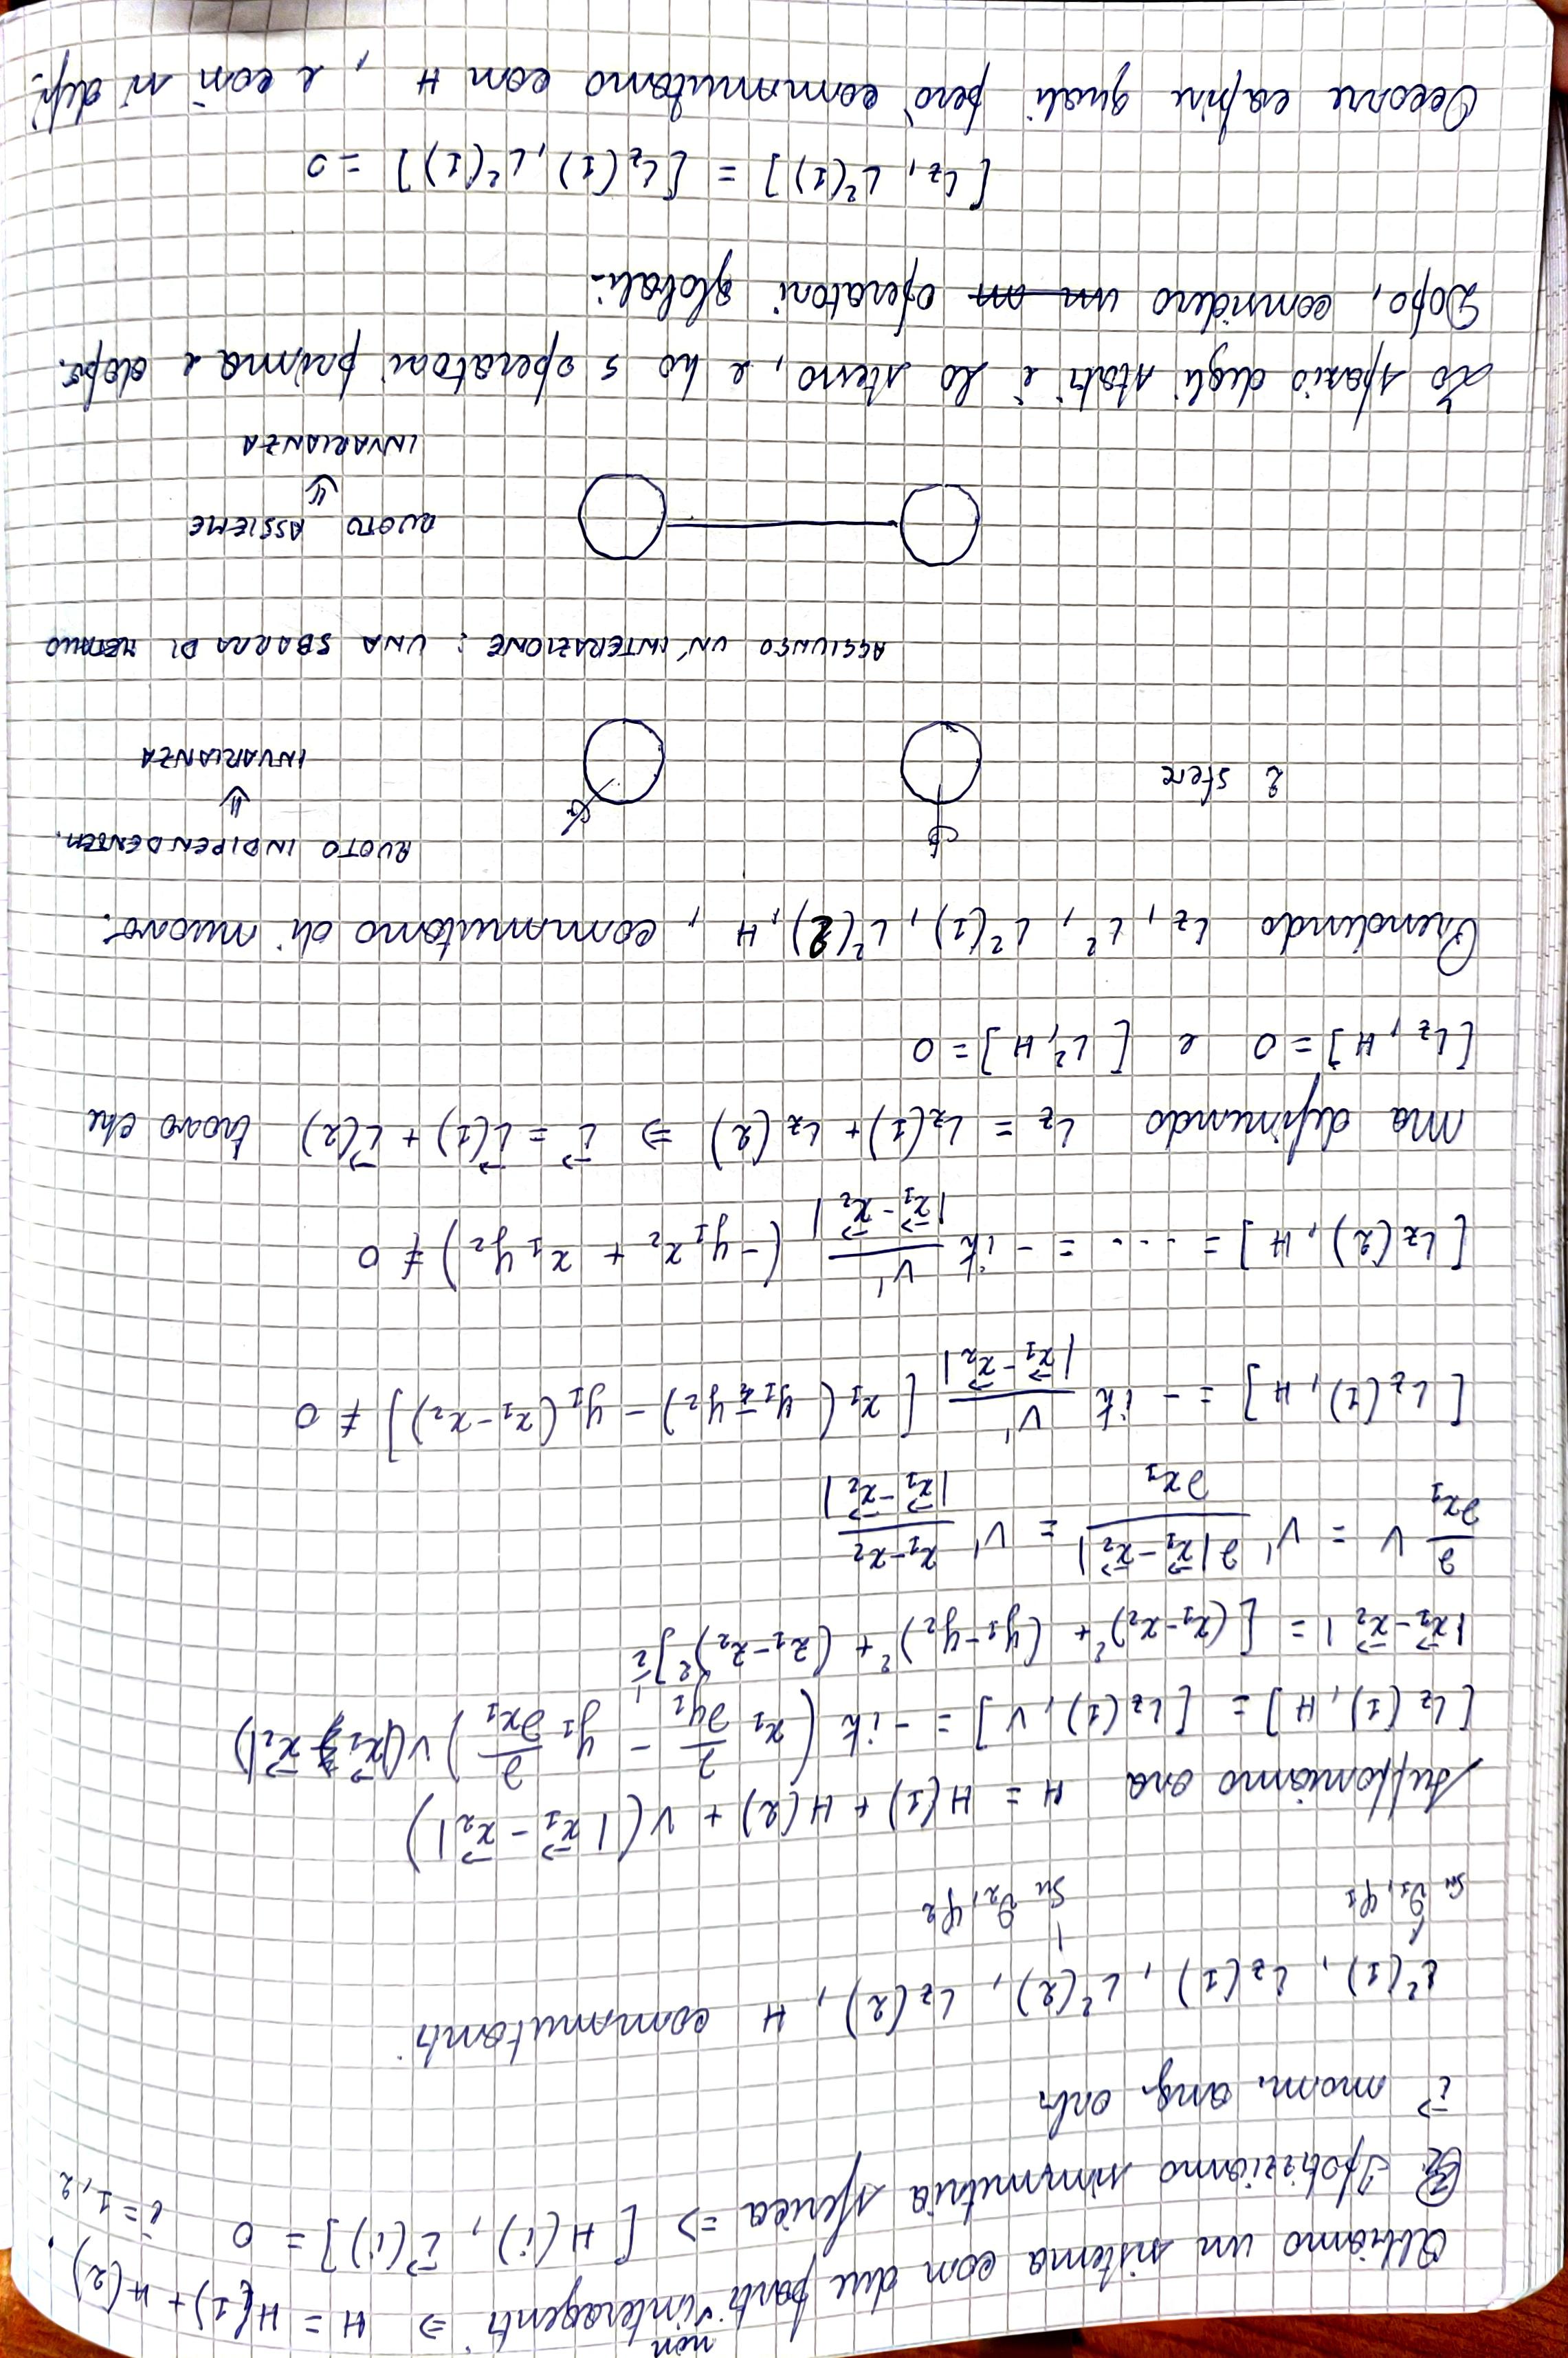 Abbiamo un sistema con due parti non interagenti ⇒ H = H(1) + H(2).
Ipotizziamo simmetria sferica ⇒ [H(i), L⃗(i)] = 0 i = 1, 2
L⃗ mom. ang. orb.
L²(1), Lz(1), L²(2), Lz(2), H commutanti
su θ₁, φ₁ su θ₂, φ₂
Supponiamo ora H = H(1) + H(2) + V(|x⃗₁ - x⃗₂|)
[Lz(1), H] = [Lz(1), V] = -iħ (x₁ ∂/∂y₁ - y₁ ∂/∂x₁) V(|x⃗₁ - x⃗₂|)
|x⃗₁ - x⃗₂| = [(x₁-x₂)² + (y₁-y₂)² + (z₁-z₂)²]^½
∂/∂x₁ V = V' ∂|x⃗₁-x⃗₂|/∂x₁ = V' (x₁-x₂)/|x⃗₁-x⃗₂|
[Lz(1), H] = -iħ V'/|x⃗₁-x⃗₂| [x₁(y₁-y₂) - y₁(x₁-x₂)] ≠ 0
[Lz(2), H] = ... = -iħ V'/|x⃗₁-x⃗₂| (-y₁x₂ + x₁y₂) ≠ 0
ma definendo Lz = Lz(1) + Lz(2) ⇒ L⃗ = L⃗(1) + L⃗(2) trovo che
[Lz, H] = 0 e [L², H] = 0
Prendendo Lz, L², L²(1), L²(2), H, commutano di nuovo.
RUOTO INDIPENDENTEM.
⇓
2 sfere INVARIANZA
AGGIUNGO UN'INTERAZIONE: UNA SBARRA DI METALLO
RUOTO ASSIEME
⇓
INVARIANZA
Lo spazio degli stati è lo stesso, e ho 5 operatori prima e dopo.
Dopo, considero un operatori globali.
[Lz, L²(1)] = [Lz(1), L²(1)] = 0
Occorre capire quali però commutano con H, e così si def.